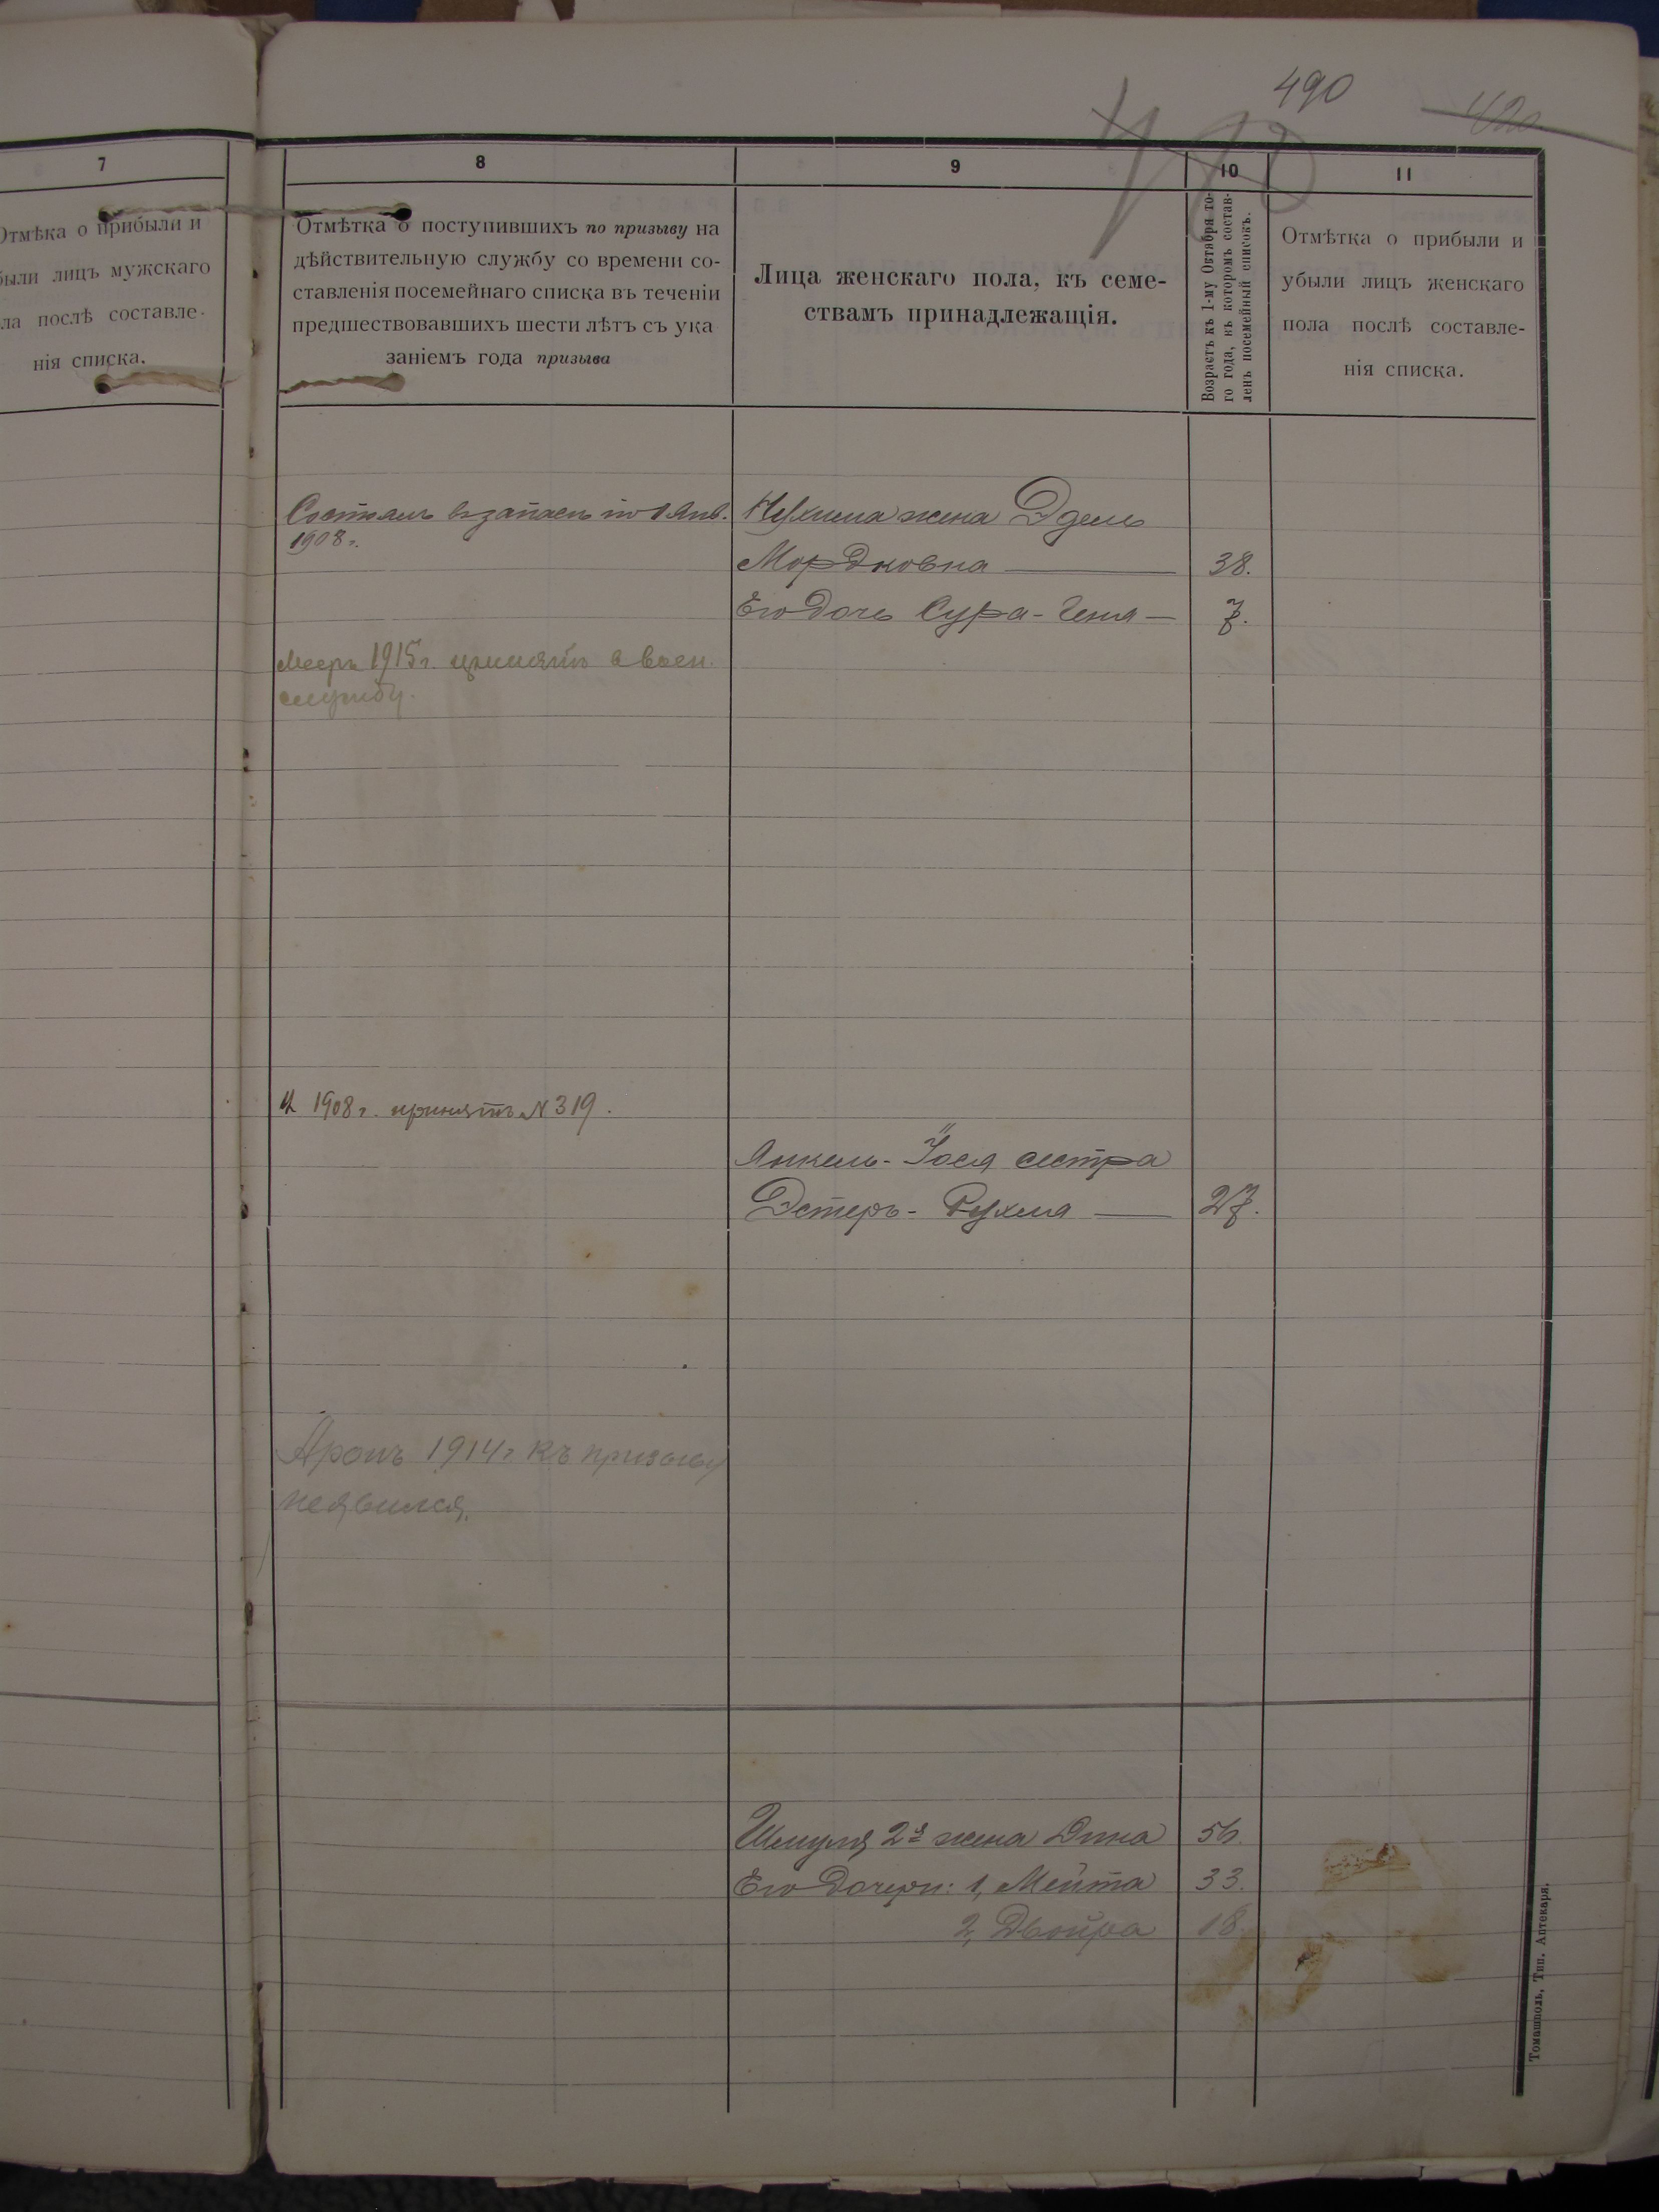 490
7
8
9
10
11
Отмѣка о прибыли и
были лицъ мужскаго
ла послѣ составле-
нія списка.
Отмѣтка о поступившихъ по призыву на
дѣйствительную службу со времени со-
ставленія посемейнаго списка въ теченіи
предшествовавшихъ шести лѣтъ съ ука
заніемъ года призыва
Лица женскаго пола, къ семе-
ствамъ принадлежащія.
Возрастъ къ 1-му Октября то-
го года, въ которомъ состав-
ленъ посемейный списокъ.
Отмѣтка о прибыли и
убыли лицъ женскаго
пола послѣ составле-
нія списка.
1908 г.
жена Эдель
Мордковна 38.
Его дочь Сура- 7.
1915 г.
службу.
1908 г. принятъ № 319.
Янкель-Іося сестра
Эстеръ-Рухля 27.
Аронъ 1914 г. къ призыву
неявился.
Шмуля 2я жена Дина 56.
Его дочери: 1, Мейта 33.
2, Двойра 18.
Томашполь, Тип. Аптекаря.